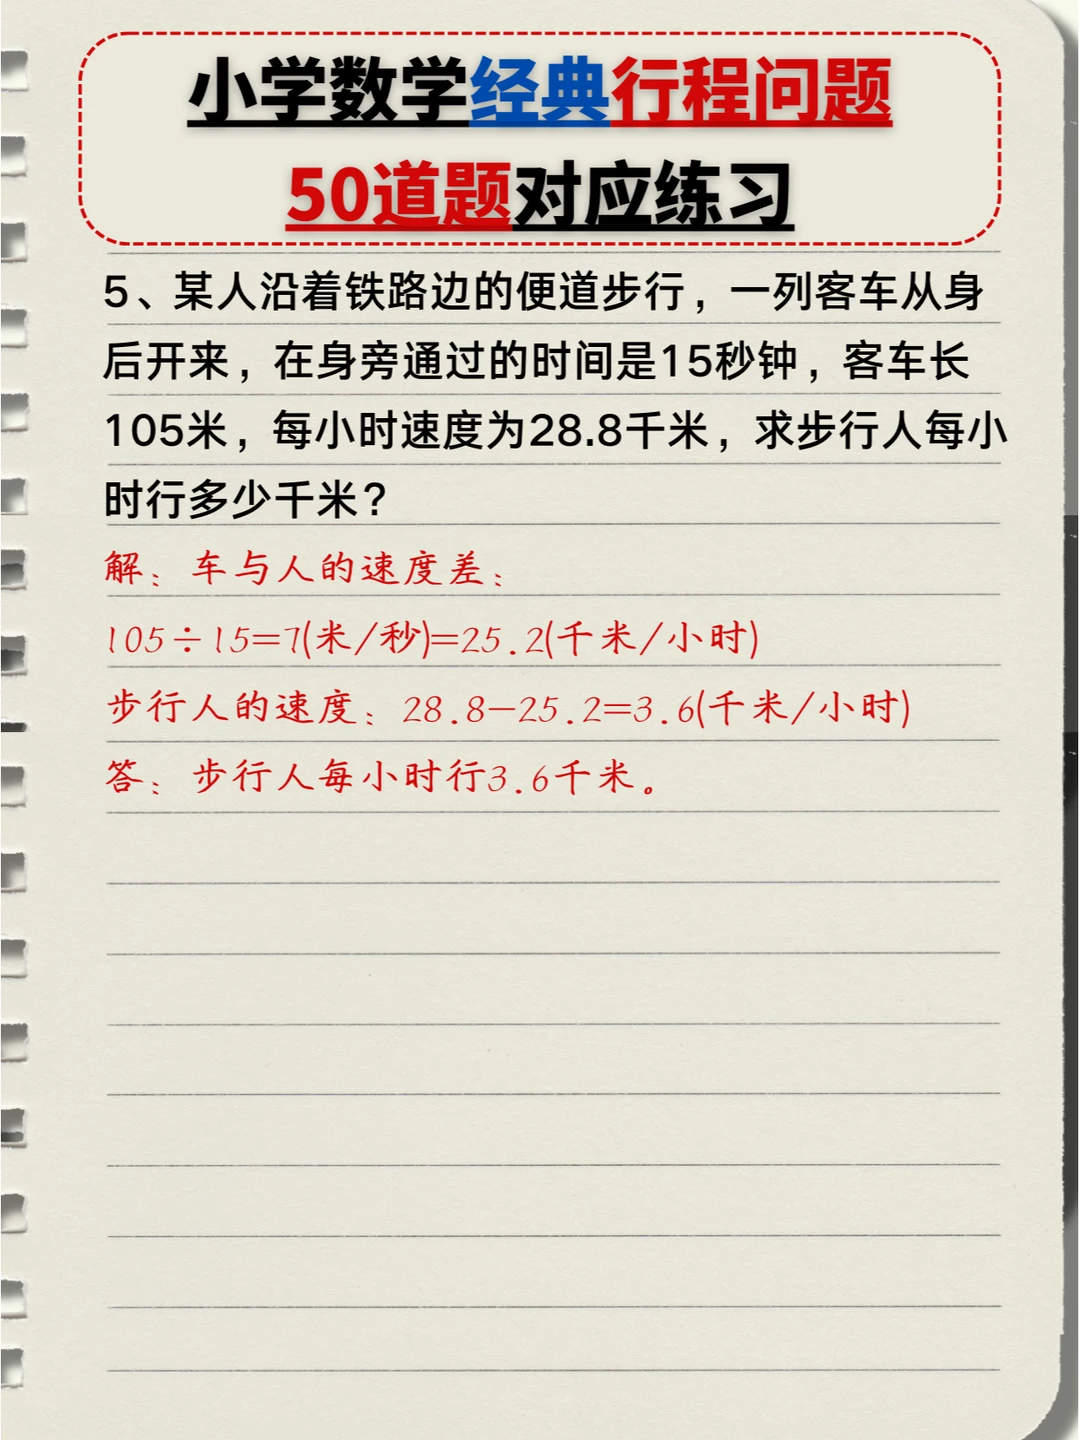 小学数学经典行程问题
50道题对应练习
5、某人沿着铁路边的便道步行，一列客车从身
后开来，在身旁通过的时间是15秒钟，客车长
105米，每小时速度为28.8千米，求步行人每小
时行多少千米？
解：车与人的速度差：
105÷15=7(米/秒)=25.2(千米/小时)
步行人的速度：28.8-25.2=3.6(千米/小时)
答：步行人每小时行3.6千米。